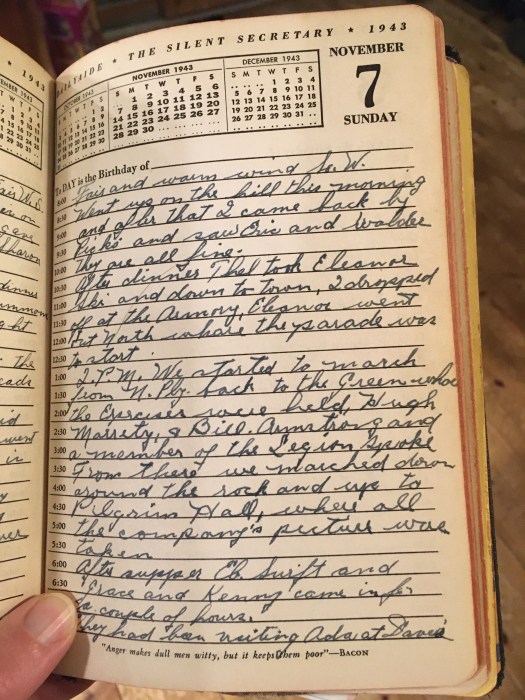 1943
DAYTAIDE ★ THE SILENT SECRETARY ★ 1943
NOVEMBER
7
SUNDAY
NOVEMBER 1943
S M T W T F S
1 2 3 4 5 6
7 8 9 10 11 12 13
14 15 16 17 18 19 20
21 22 23 24 25 26 27
28 29 30
DECEMBER 1943
S M T W T F S
1 2 3 4
5 6 7 8 9 10 11
12 13 14 15 16 17 18
19 20 21 22 23 24 25
26 27 28 29 30 31
To DAY is the Birthday of
8:00 Fair and warm wind So. W.
8:30 Went up on the hill this morning
9:00 and after that I came back by
9:30 and saw Eric and
10:00 they are all fine.
10:30 After dinner Thel took Eleanor
11:00 and down to town, I dropped
11:30 off at the Armory, Eleanor went
12:00 out North whare the parade was
12:30 to start.
1:00 2. P. M. We started to march
1:30 from N. Ply. back to the Green
2:00 the Exercises were held, Hugh
2:30 & Bill Armstrong and
3:00 a member of the Legion spoke
3:30 From there we marched down
4:00 around the rock and up to
4:30 Pilgrim Hall, where all
5:00 the company's picture was
5:30 taken
6:00 After supper Eb. Swift and
6:30 Grace and Kenny came in for
a couple of hours.
They had been visiting Ada at
"Anger makes dull men witty, but it keeps them poor"—BACON